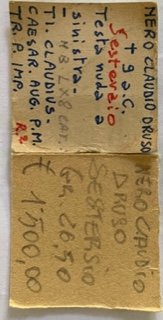 NERO CLAUDIO DRUSO
+ 9 a.C.
Sesterzio
Testa nuda a
sinistra -
TI. CLAUDIUS.
CAESAR. AUG. P.M.
TR. P. IMP.
NERO CLAUDIO
DRUSO
SESTERSIO
GR. 26,50
€ 1.500,00